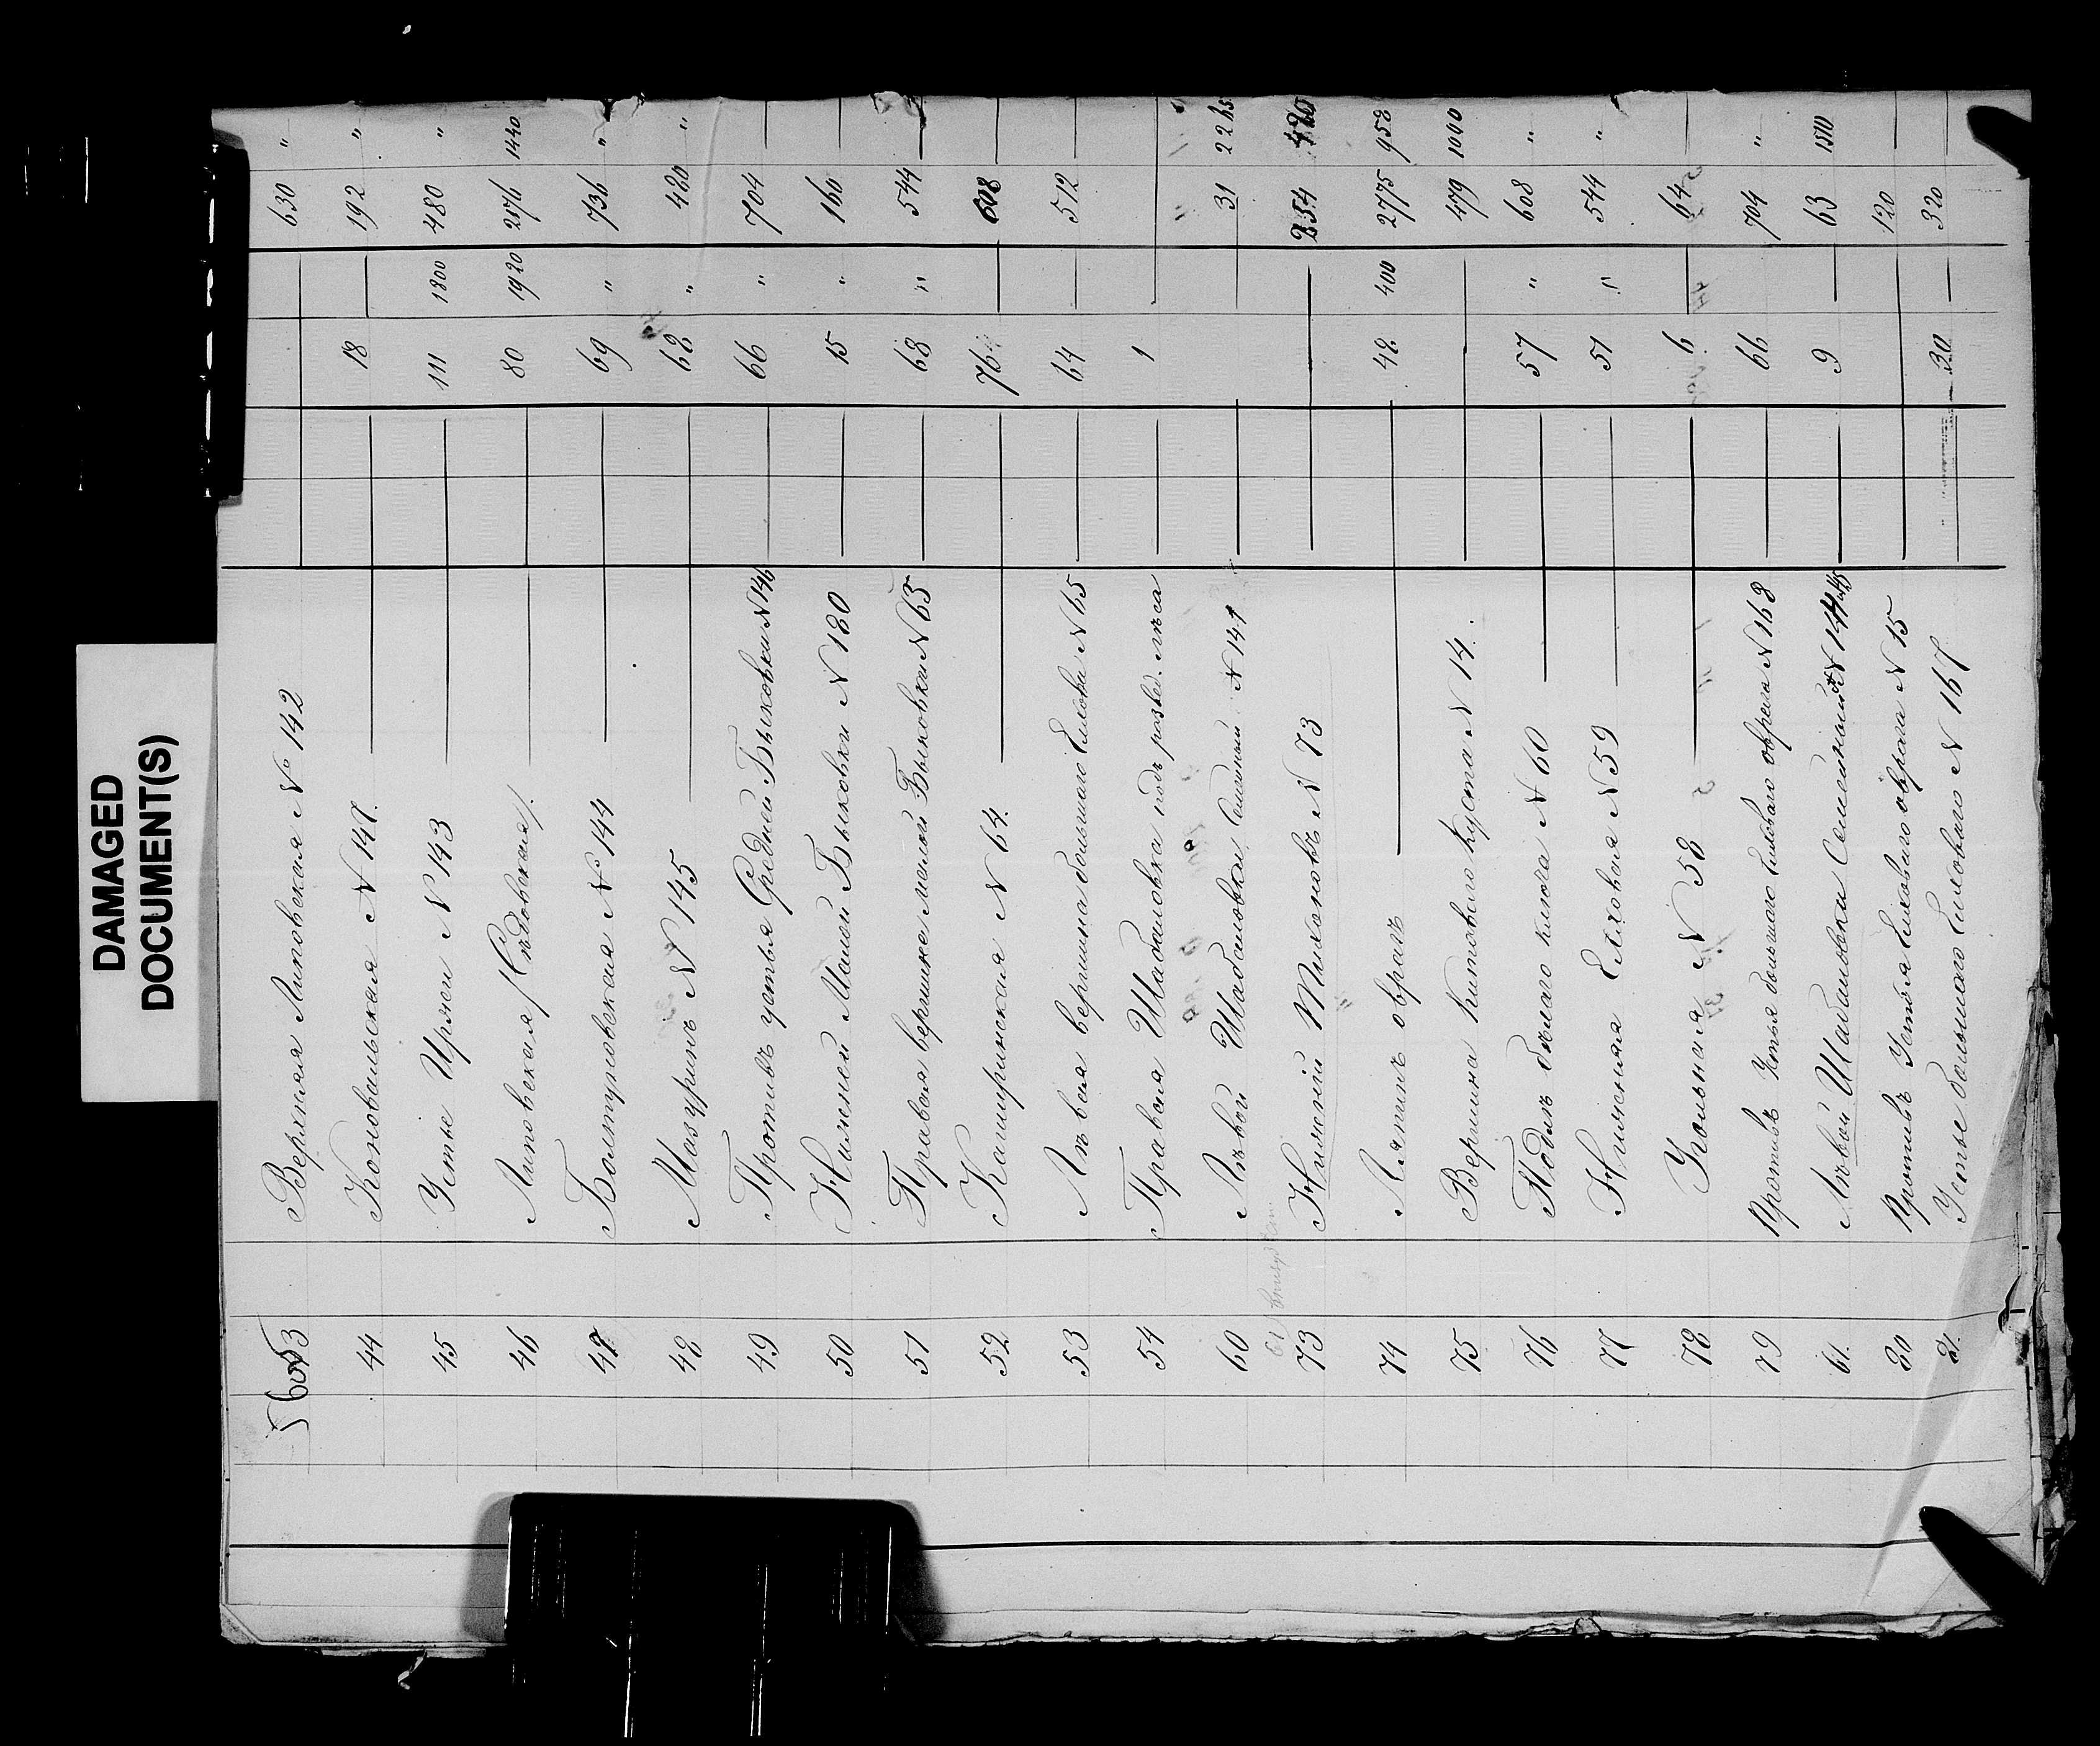 DAMAGED
DOCUMENT(S)
43 Верхняя Липовская № 142 630 "
44 Коновальская № 147. 18 192 "
45 Устье Иржеи № 143 111 1800 480 "
46 Липовская /Сѣдовская/. 80 1920 2576 1440
47 Болтуновская № 144 69 " 736 "
48 Мазуринъ № 145 62 " 480 "
49 Противъ устья Средней Быковки № 146 66 " 704
50 Нижней Малой Быковки № 180 15 " 160
51 Правая вершинка малой Быковки № 63 68 " 544
52 Каширинская № 64. 76 608
53 Лѣвая вершина большаго Елховка № 65 64 512
54 Правая Шабаловка подъ развед. лѣса 1
60 Лѣвой Шабаловки Семенный № 141 31 2265
73 Нижній Тихоновъ № 73 254
74 Ляпинъ оврагъ 42 400 2775 958
75 Вершина Китоваго Куста № 14. 479 1000
76 Подлѣ бѣлаго ключа № 60 57 " 608 "
77 Нижняя Елховая № 59 51 " 544 "
78 Угольная № 58 6 64
79 Противъ Устья большаго Елховаго оврага № 168 66 704 "
61. Лѣвой Шабаловки Семенный № 144 9 63 1510
80 Противъ Устья Елховаго оврага № 15 120
81. Устье большаго Елховаго № 167 30 320